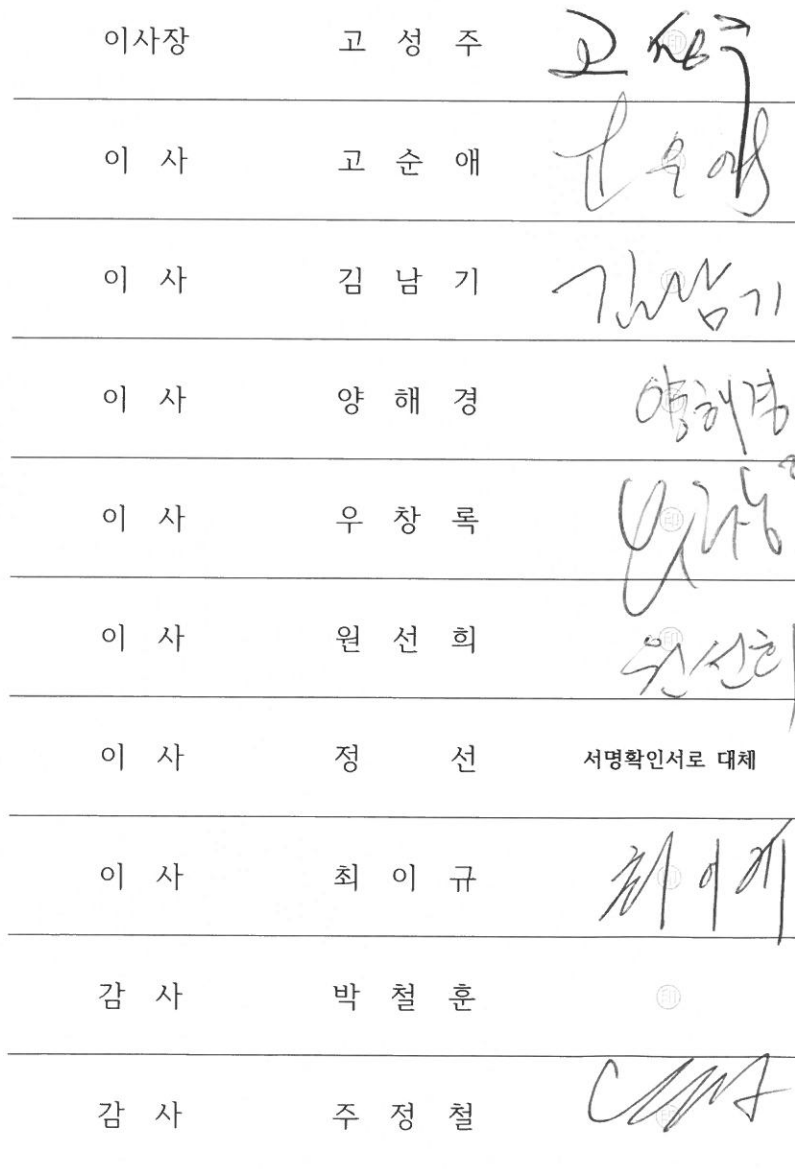 이사장 고 성 주 고성주 印
이 사 고 순 애 고순애 印
이 사 김 남 기 김남기 印
이 사 양 해 경 양해경
이 사 우 창 록 印
이 사 원 선 희 원선희 印
이 사 정 선 서명확인서로 대체
이 사 최 이 규 최이규 印
감 사 박 철 훈 印
감 사 주 정 철 印